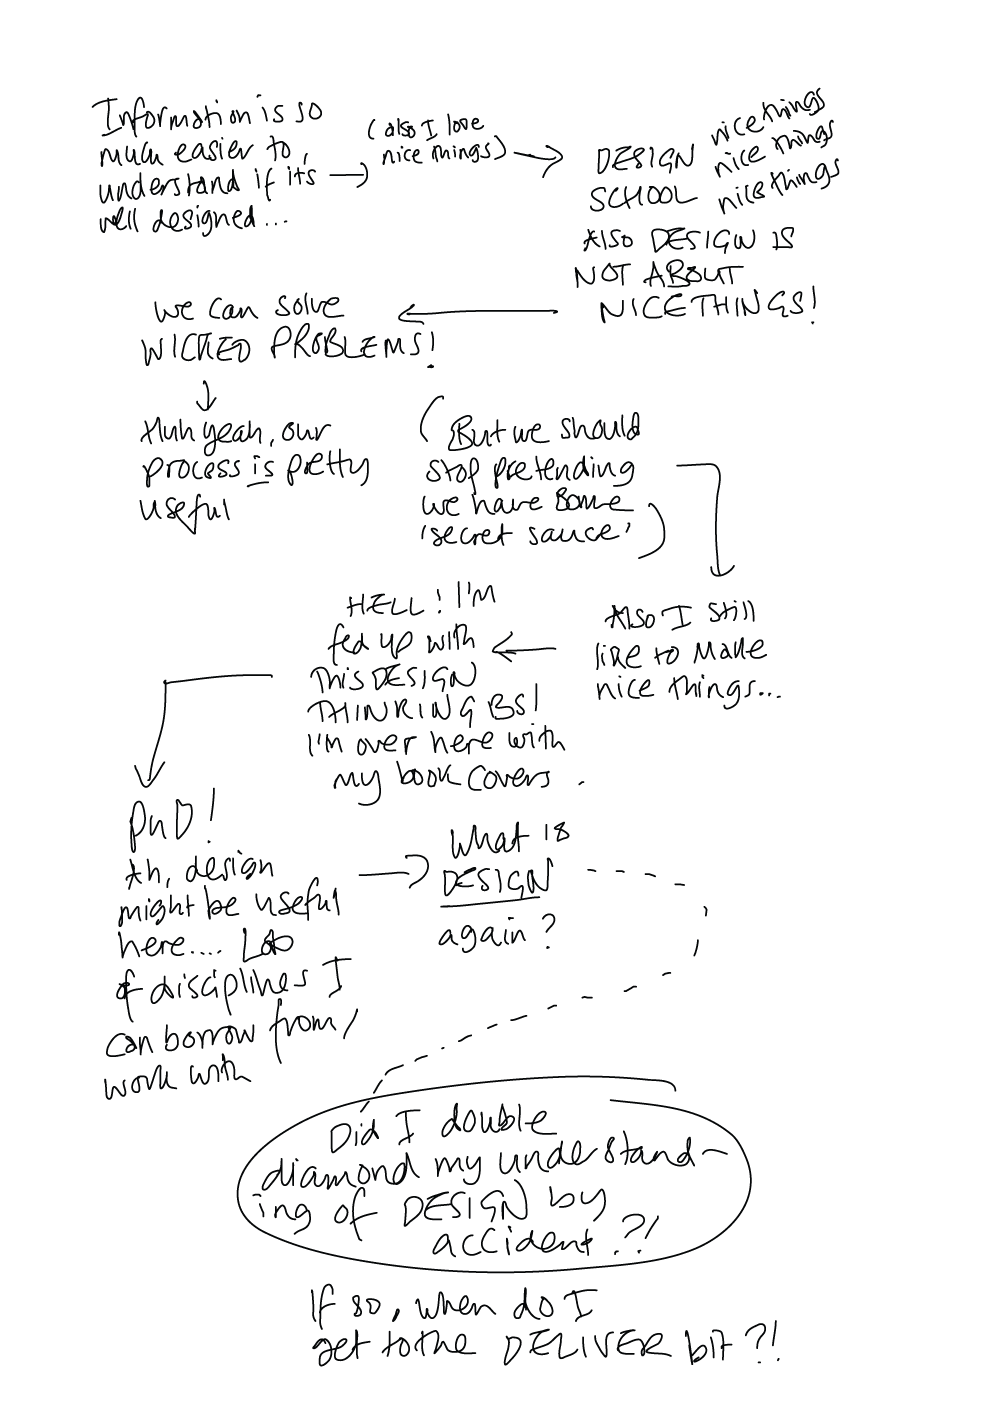 Information is so
much easier to
understand if its
well designed...
(also I love
nice things)
DESIGN
SCHOOL
nice things
nice things
nice things
Also DESIGN IS
NOT ABOUT
NICE THINGS!
We can solve
WICKED PROBLEMS!
Huh yeah, our
process is pretty
useful
(But we should
stop pretending
we have some
'secret sauce')
Also I still
like to make
nice things...
HELL! I'm
fed up with
this DESIGN
THINKING BS!
I'm over here with
my book covers.
PhD!
Ah, design
might be useful
here.... Lots
of disciplines I
can borrow from/
work with
What is
DESIGN
again?
Did I double
diamond my understand-
ing of DESIGN by
accident?!
If so, when do I
get to the DELIVER bit?!